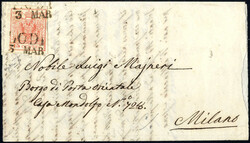 3 MAR
LODI
3 MAR
Nobile Luigi Majneri
Borgo di Porta orientale
Casa Mondolfo N.º 726.
Milano